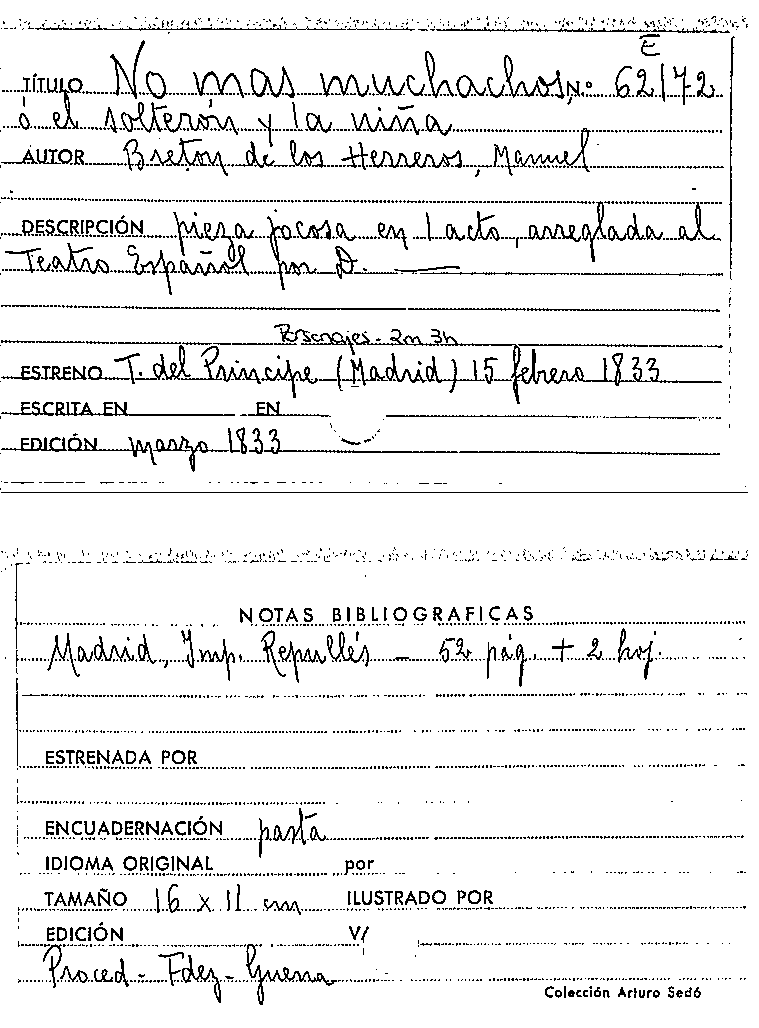 E
TÍTULO No mas muchachos, Nº 62172
ó el solterón y la niña
AUTOR Breton de los Herreros, Manuel
DESCRIPCIÓN pieza jocosa en 1 acto, arreglada al
Teatro Español por D. ——
Personajes - 2m 3h
ESTRENO T. del Principe (Madrid) 15 febrero 1833
ESCRITA EN EN
EDICIÓN marzo 1833
NOTAS BIBLIOGRAFICAS
Madrid, Imp. Repullés - 52 pág. + 2 hoj.
ESTRENADA POR
ENCUADERNACIÓN pasta
IDIOMA ORIGINAL por
TAMAÑO 16 x 11 cm ILUSTRADO POR
EDICIÓN V/
Proced - Fdez - Guerra
Colección Arturo Sedó